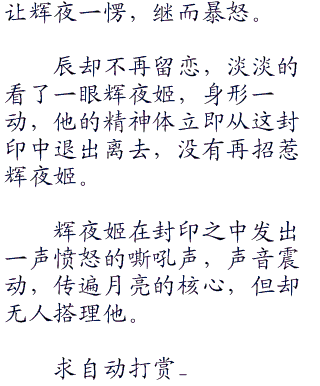 让辉夜一愣，继而暴怒。
辰却不再留恋，淡淡的
看了一眼辉夜姬，身形一
动，他的精神体立即从这封
印中退出离去，没有再招惹
辉夜姬。
辉夜姬在封印之中发出
一声愤怒的嘶吼声，声音震
动，传遍月亮的核心，但却
无人搭理他。
求自动打赏_